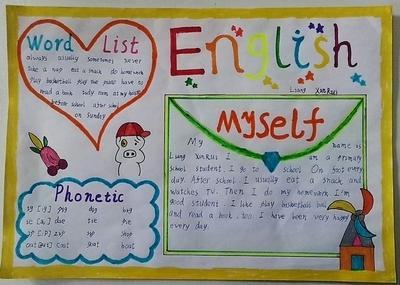 English
Liang XinRui
Word List
always usually sometimes never
take a nap eat a snack do homework
play basketball play the piano have to
read a book study at my house
before school after school
on Sunday
Myself
My name is
Liang XinRui I am a primary
school student. I go to school On foot every
day. After school I usually eat a snack and
watches TV. Then I do my homework. I'm
good student. I like play basketball ball
and read a book, too. I have been very happy
every day.
Phonetic
dog
die tie pie
[ɪp] zip sip
coat goat boat